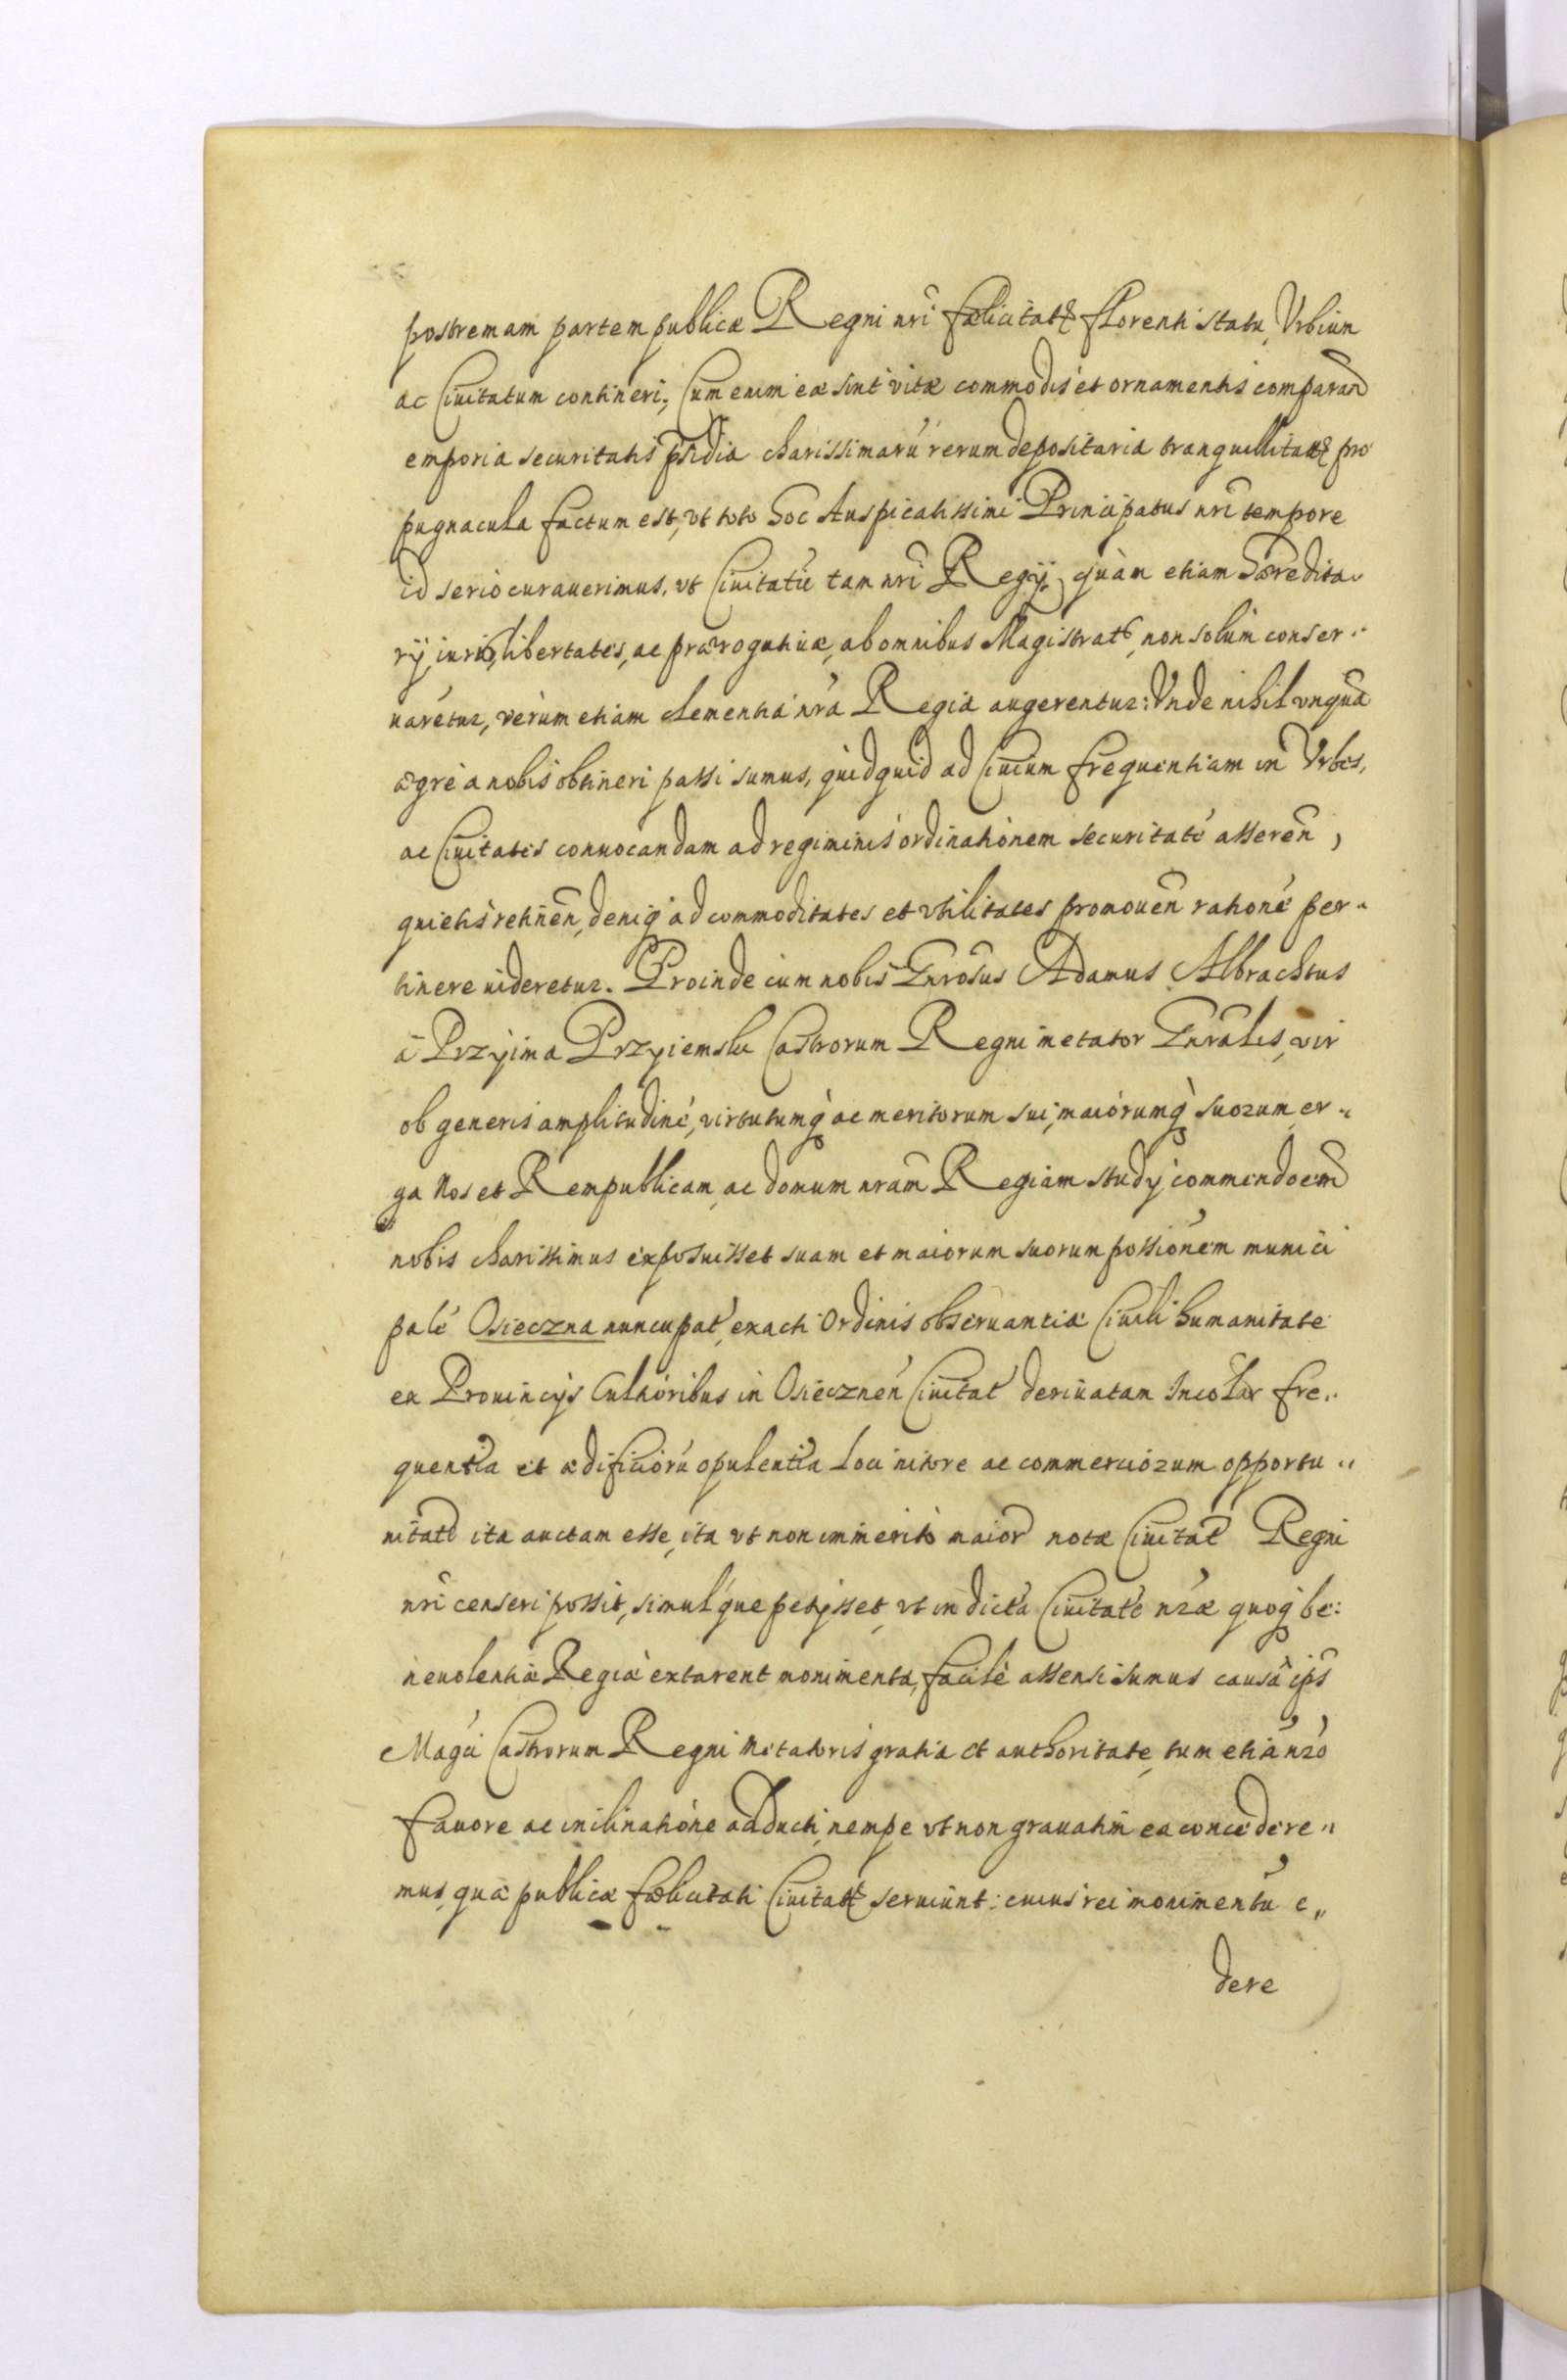 postremam partem publicæ Regni nrĩ fælicitatẽ florenti statu, Urbium
ac Ciuitatum contineri; Cum enim eæ sint vitæ commodis et ornamentis comparand
emporia securitatis p̃sidia charissimarú rerum depositaria tranquillitatẽ pro
pugnacula factum est, vt toto hoc Auspicatissimi Principatus nrĩ tempore
id serió curauerimus, vt Ciuitatú tam nrĩ Regÿ, quàm etiam hæredita„
rÿ, iuris, libertates, ac prærogatiuæ, ab omnibus Magistrat9, non solùm conser„
uarétur, verùm etiam clementiá nrá Regia augerentur: Vnde nihil vnquã
ægrè a nobis obtineri passi sumus, quidquid ad Ciuium frequentiam in Vrbes,
ac Ciuitates conuocandam ad regiminis ordinationem securitaté asseren̄,
quietis retinen̄, deniq̀ ad commoditates et vtilitates promouen̄ rationé per„
tinere uideretur. Proinde cum nobis Gnrõsus Adamus Albrachtus
à Przyima Przyiemski Castrorum Regni metator Gnrãlis, vir
ob generis amplitudiné, virtutumq̀ ac meritorum sui, maiórumq̀ suorum, er„
ga Nos et Rempublicam, ac domum nrãm Regiam studÿ commendõem
nobis charissimus exposuisset suam et maiorum suorum possiõnem munici
palé Osieczna nuncupat́, exacti Ordinis obseruantiæ Ciuili humanitate
ex Prouincÿs Cultióribus in Osiecznén Ciuitat́ deriuatam Incolar̃ fre„
quentia et ædificiórú opulentia Loci nitore ac commerciórum opportu„
nitatẽ ita auctam esse, ita vt non immeritò maior̃ notæ Ciuitat́ Regni
nrĩ censeri possit, simuĺque petÿsset, vt in dictá Ciuitaté nræ quoq̀ be:
neuolentiæ Regiæ extarent monimenta, facilè assensi sumus causâ ips̃
Magći Castrorum Regni Metatoris gratiá et authoritate, tum etiã nró
fauore ac inclinatióne adducti, nempe vt non grauatim ea concedere„
mus, quæ publicæ fælicitati Ciuitatẽ seruiunt: cuius rei monimentú e„
dere